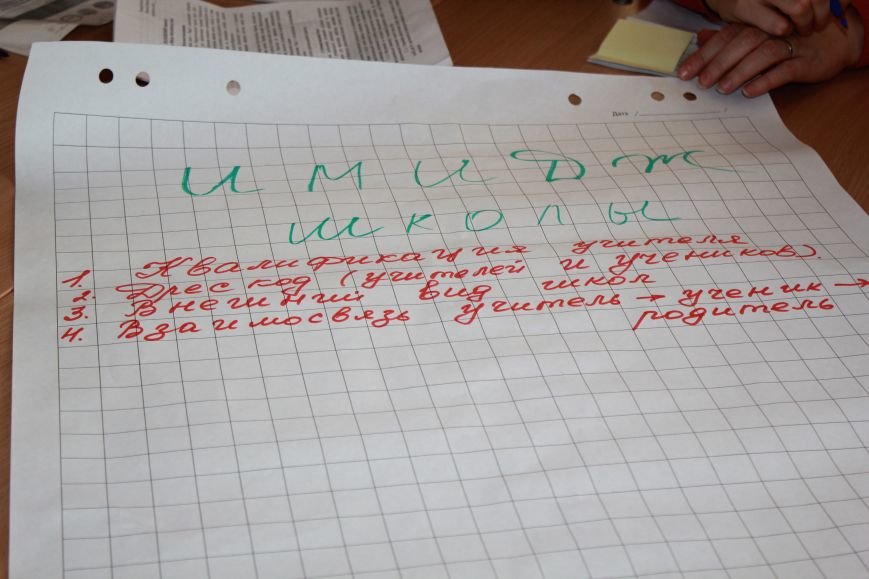 Дата / /
ИМИДЖ
ШКОЛЫ
1. Квалификация учителя
2. Дрес код (учителей и учеников).
3. Внешний вид школ
4. Взаимосвязь учитель → ученик →
родитель